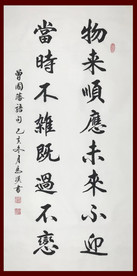 物来順應未来不迎
當時不雜既過不戀
曾國藩語句己亥冬月